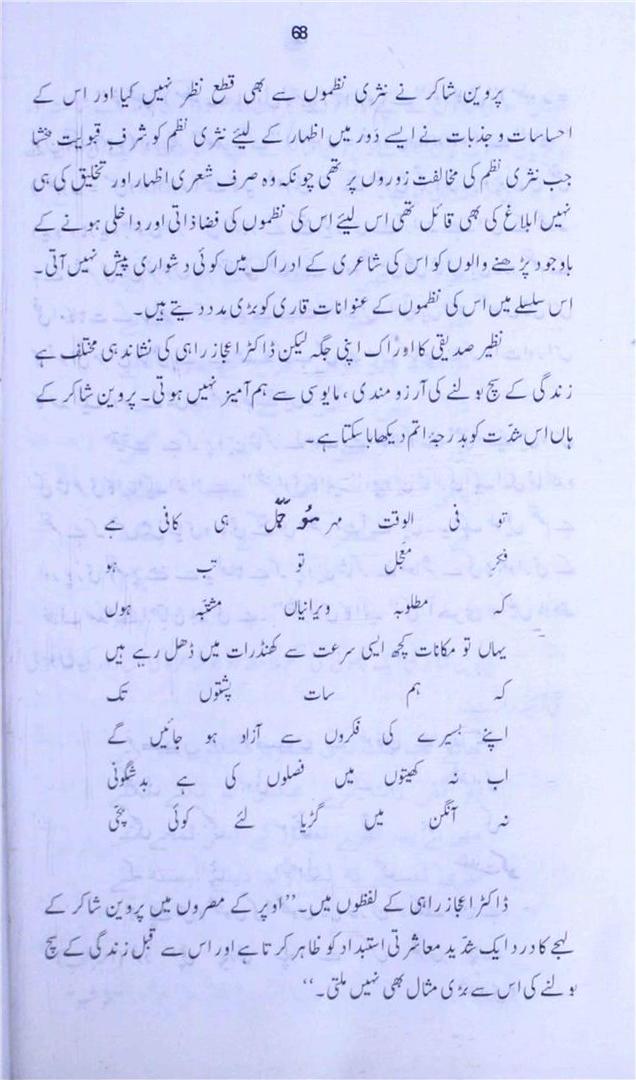 68
پروین شاکر نے نثری نظموں سے بھی قطع نظر نہیں کیا اور اس کے
احساسات و جذبات نے ایسے دَور میں اظہار کے لیئے نثری نظم کو شرف قبولیت بخشا
جب نثری نظم کی مخالفت زوروں پر تھی چونکہ وہ صرف شعری اظہار اور تخلیق کی ہی
نہیں ابلاغ کی بھی قائل تھی اس لیئے اس کی نظموں کی فضا ذاتی اور داخلی ہونے کے
باوجود پڑھنے والوں کو اس کی شاعری کے ادراک میں کوئی دشواری پیش نہیں آتی۔
اس سلسلے میں اس کی نظموں کے عنوانات قاری کو بڑی مدد دیتے ہیں۔
نظیر صدیقی کا اوراک اپنی جگہ لیکن ڈاکٹر اعجاز راہی کی نشاندہی مختلف ہے
زندگی کے سچ بولنے کی آرزو مندی، مایوسی سے ہم آمیز نہیں ہوتی۔ پروین شاکر کے
ہاں اس شدّت کو بدرجۂ اتم دیکھا جا سکتا ہے۔
تو فی الوقت مہر ہی کافی ہے
معجّل تو تب ہو
کہ مطلوبہ ویرانیاں مشتبہ ہوں
یہاں تو مکانات کچھ ایسی سرعت سے کھنڈرات میں ڈھل رہے ہیں
کہ ہم سات پشتوں تک
اپنے بسیرے کی فکروں سے آزاد ہو جائیں گے
اب نہ کھیتوں میں فصلوں کی ہے بدشگونی
نہ آنگن میں گڑیا لئے کوئی بچّی
ڈاکٹر اعجاز راہی کے لفظوں میں۔ ’’اوپر کے مصرعوں میں پروین شاکر کے
لہجے کا درد ایک شدّید معاشرتی استبداد کو ظاہر کرتا ہے اور اس سے قبل زندگی کے سچ
بولنے کی اس سے بڑی مثال بھی نہیں ملتی۔‘‘